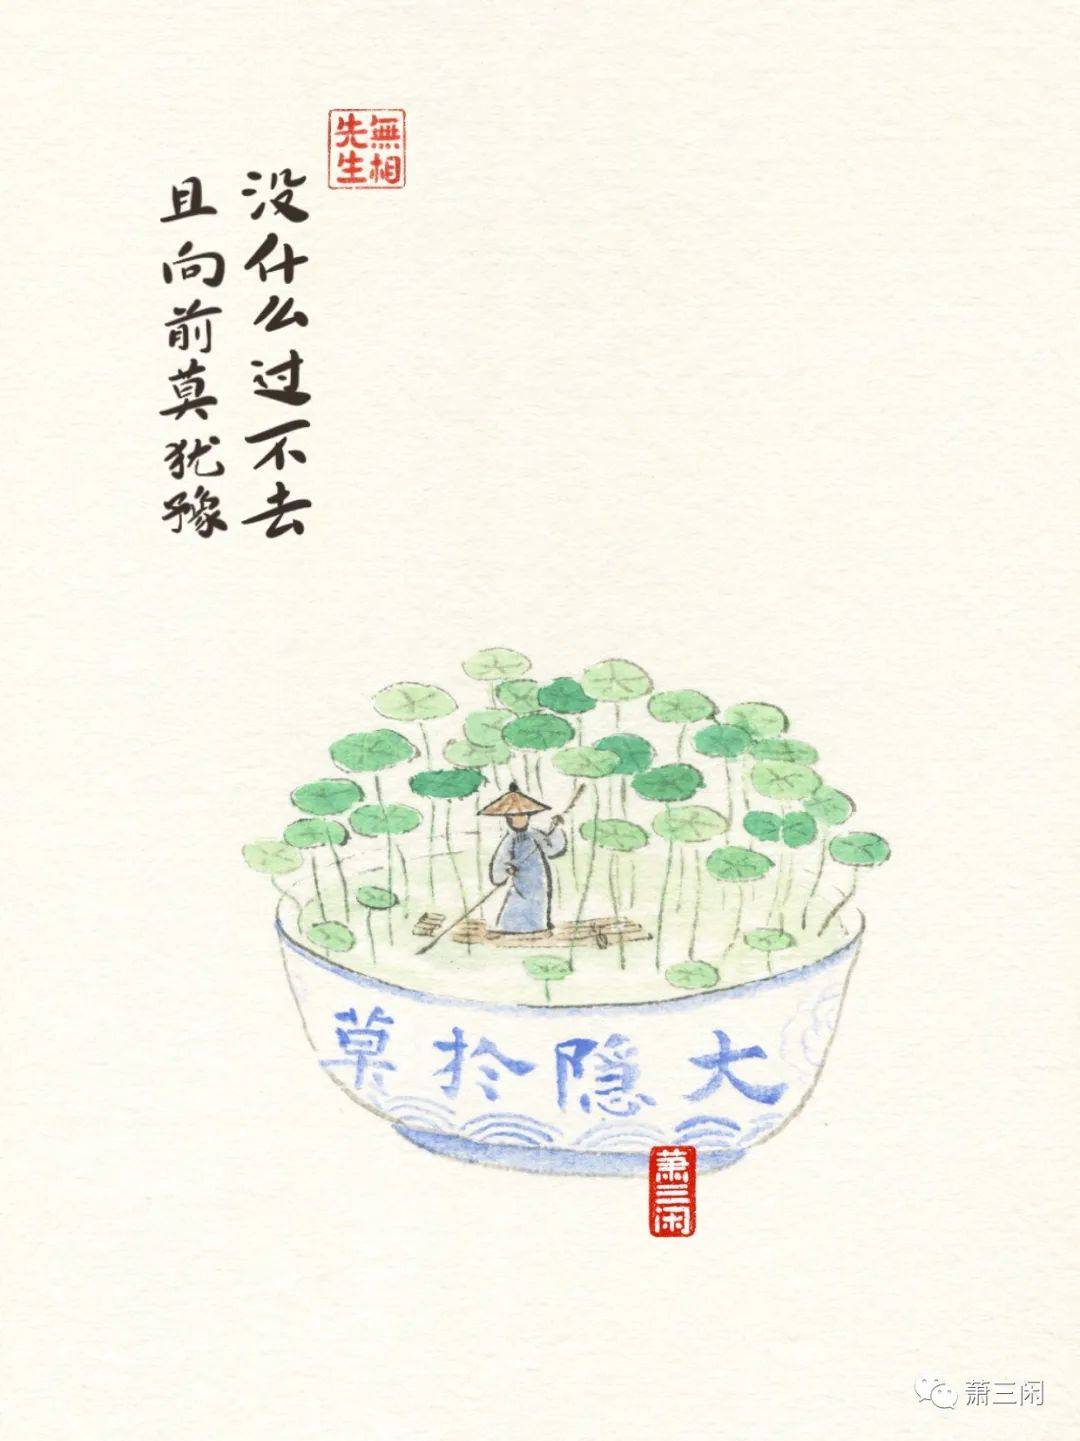 無相先生
没什么过不去
且向前莫犹豫
大隐於莫
萧三闲
萧三闲